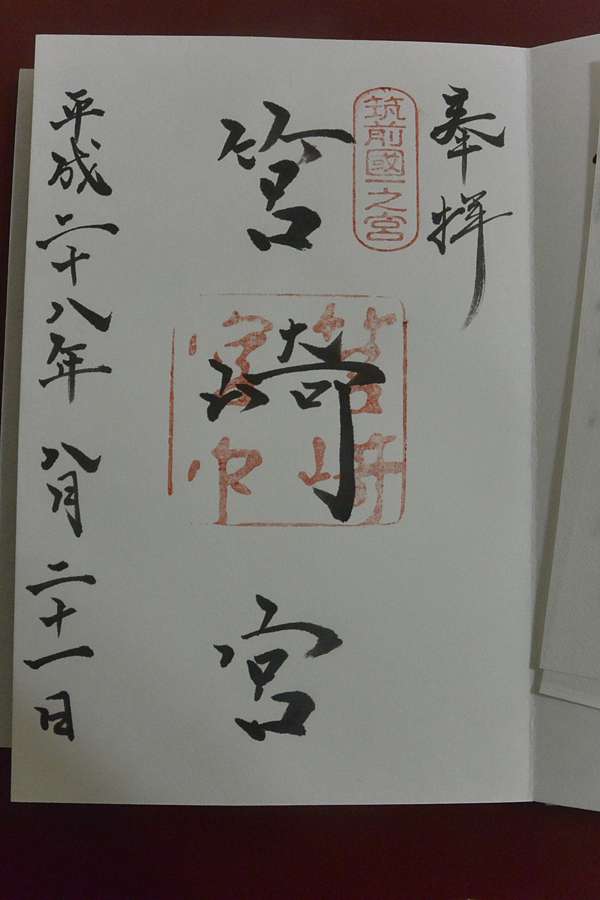 奉拝
筑前國一之宮
筥崎宮
筥崎宮印
平成二十八年 八月 二十一日